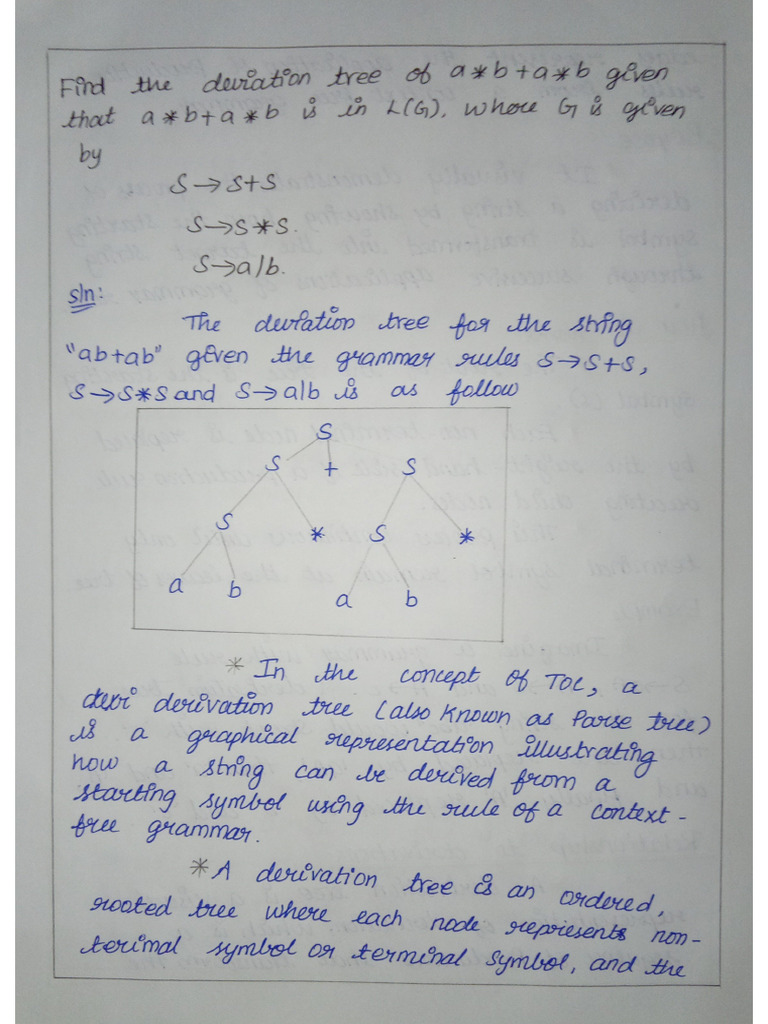 Find the deviation tree of a*b+a*b given
that a*b+a*b is in L(G), where G is given
by
S→S+S
S→S*S.
S→a/b.
sln:
The deviation tree for the string
"ab+ab" given the grammar rules S→S+S,
S→S*S and S→a|b is as follow
S
S + S
S * S *
a b a b
* In the concept of TOC, a
devi derivation tree (also known as Parse tree)
is a graphical representation illustrating
how a string can be derived from a
starting symbol using the rule of a context-
free grammar.
* A derivation tree is an ordered,
rooted tree where each node represents non-
terimal symbol or terminal symbol, and the